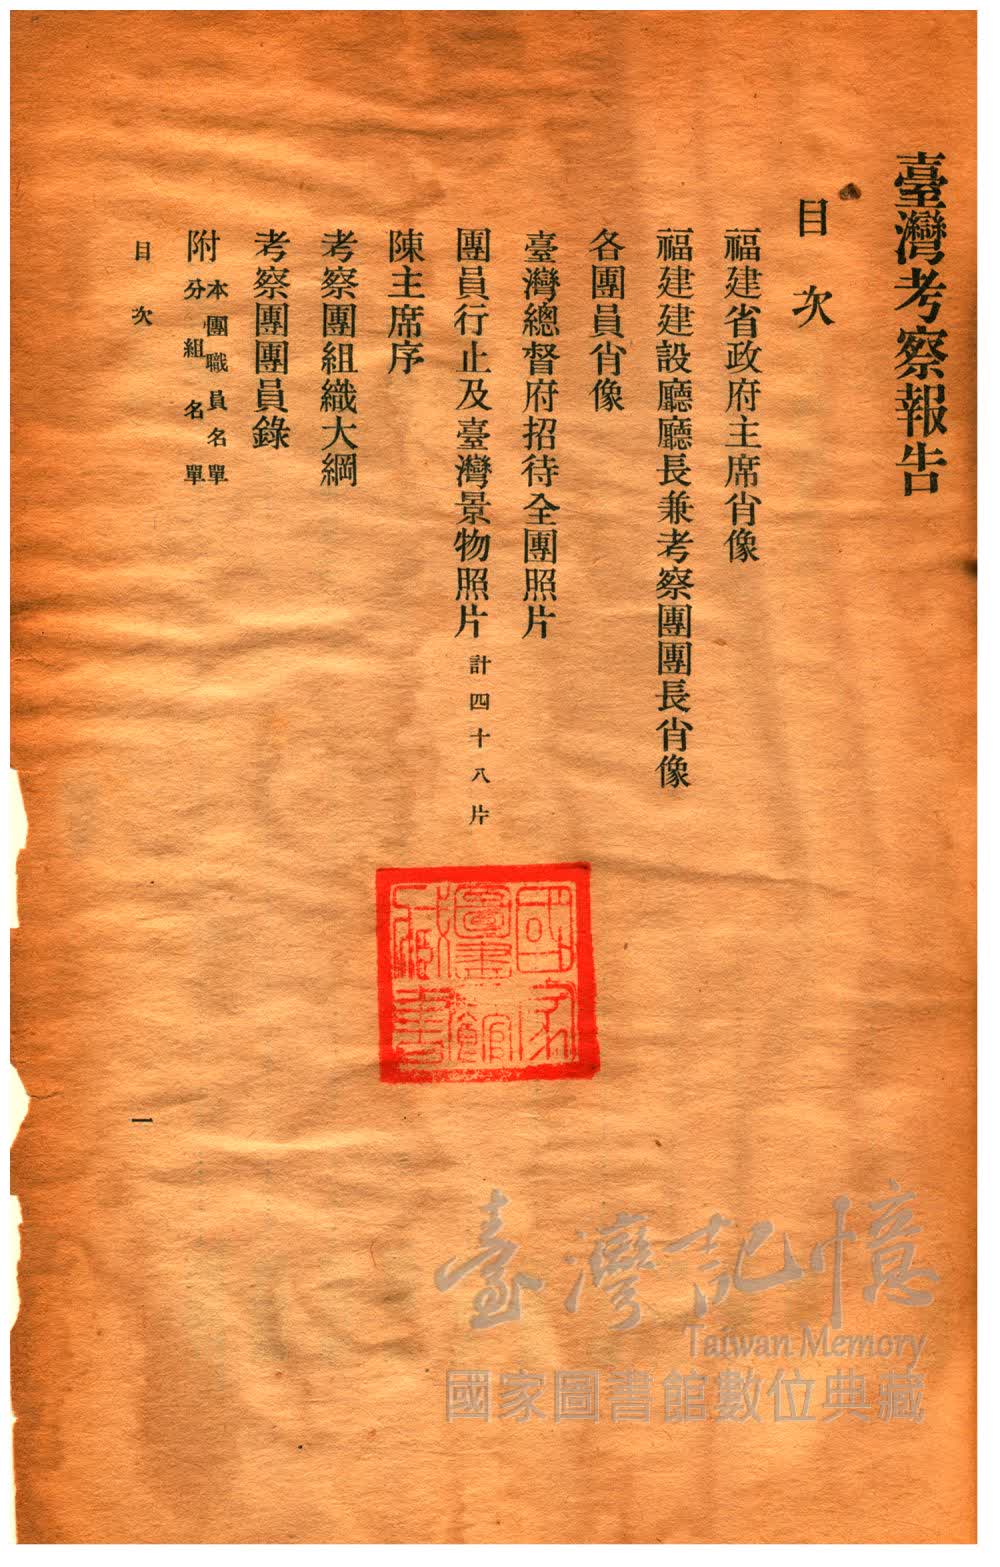 臺灣考察報告
目次
福建省政府主席肖像
福建建設廳廳長兼考察團團長肖像
各團員肖像
臺灣總督府招待全團照片
團員行止及臺灣景物照片 計四十八片
陳主席序
考察團組織大綱
考察團團員錄
附 本團職員名單
分組名單
目次
一
國家
圖書館
藏書
臺灣記憶
Taiwan Memory
國家圖書館數位典藏